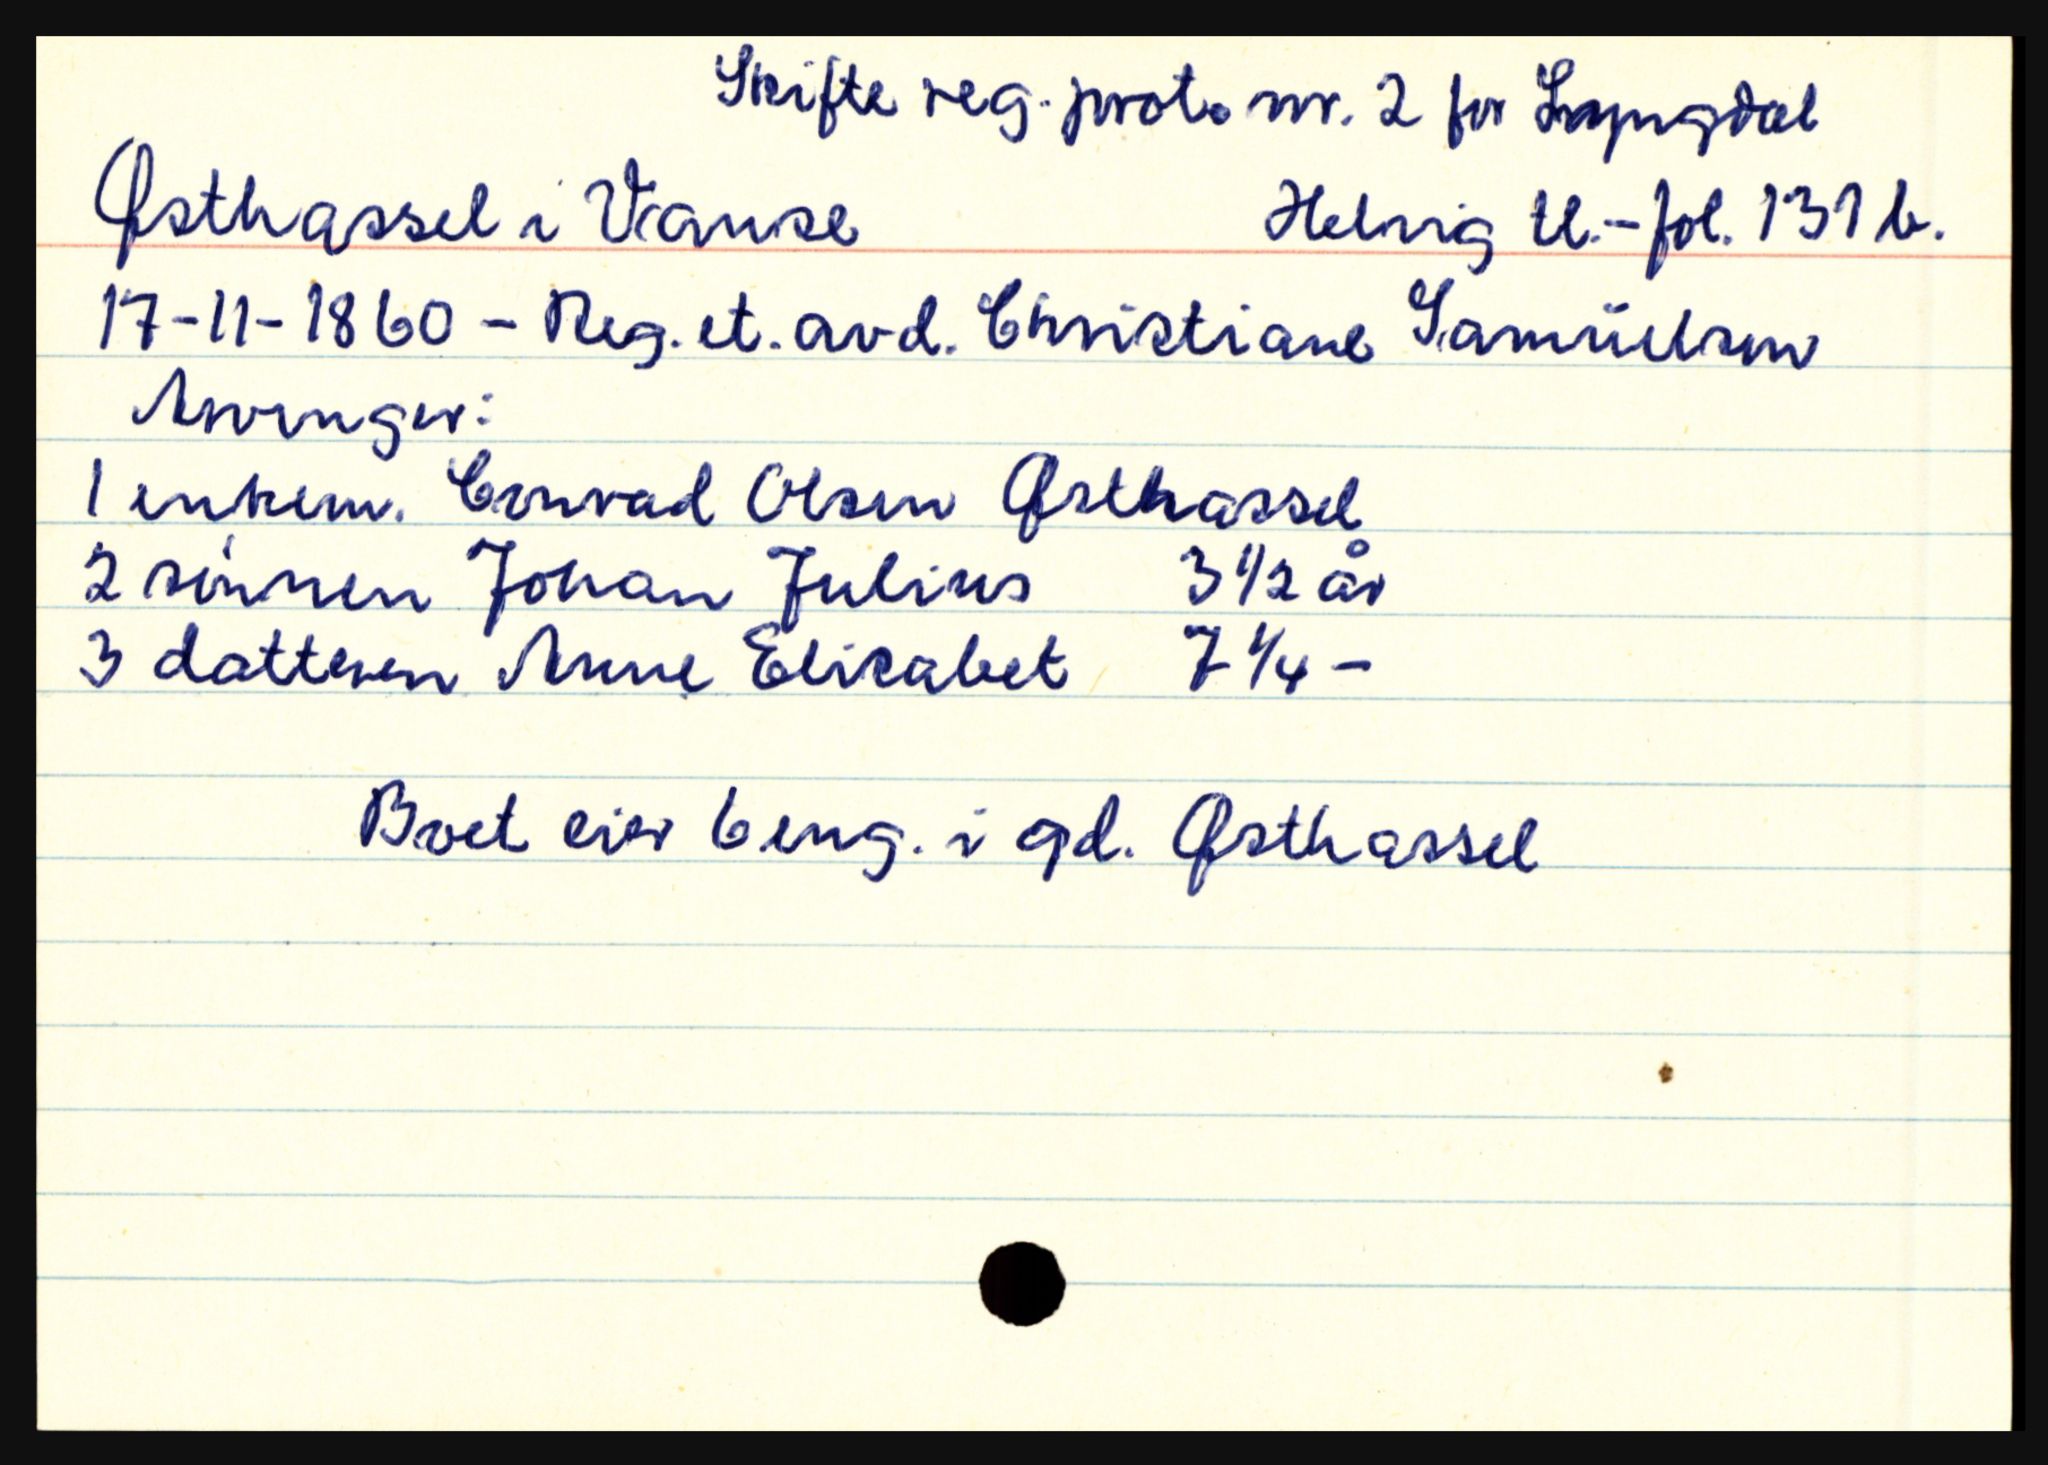 Skifte reg. prot. nr. 2 for Lyngdal
Østhassel i Vanse Helvig tl. - fol. 131 b.
17-11-1860 - Reg. et. avd. Christiane Samüelsen
Arvinger:
1 enkem. Conrad Olsen Østhassel
2 sönnen Johan Julius 3 1/2 år
3 datteren Anne Elisabet 7 1/4 -
Boet eier beng. i gd. Østhassel